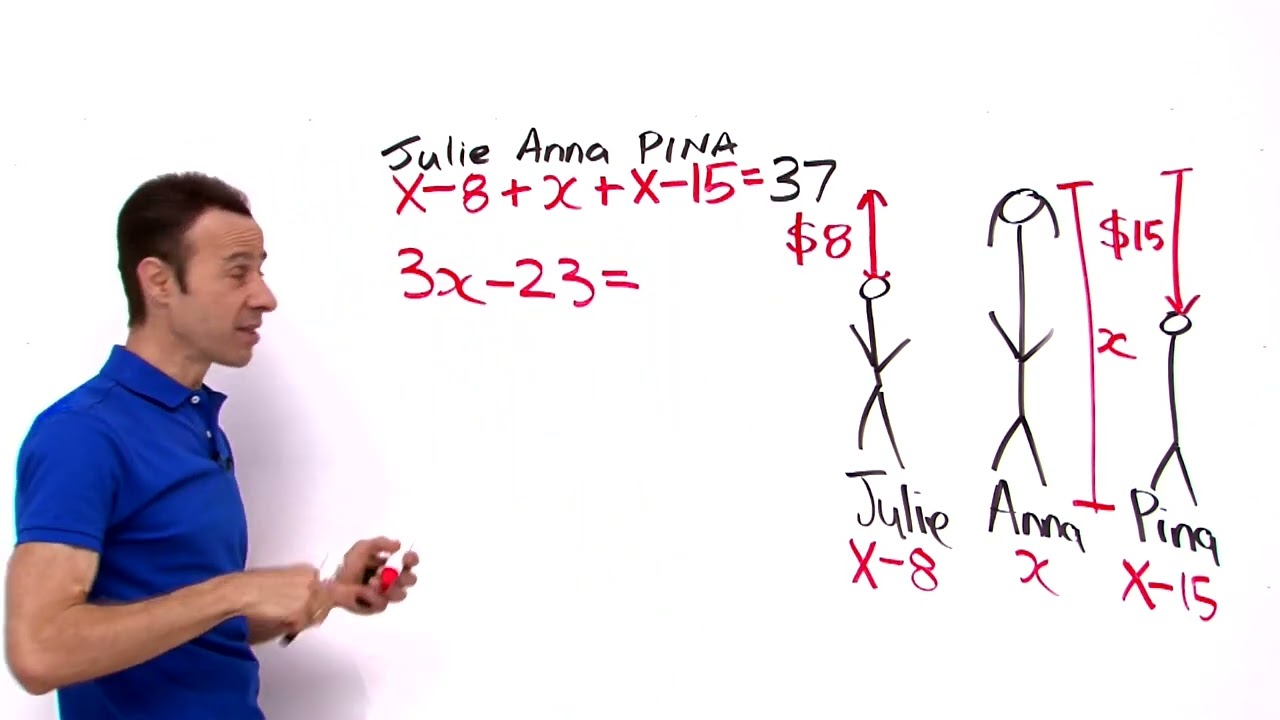 Julie Anna PINA
x-8+x+x-15=37
3x-23=
$8
$15
x
Julie Anna Pina
x-8 x x-15